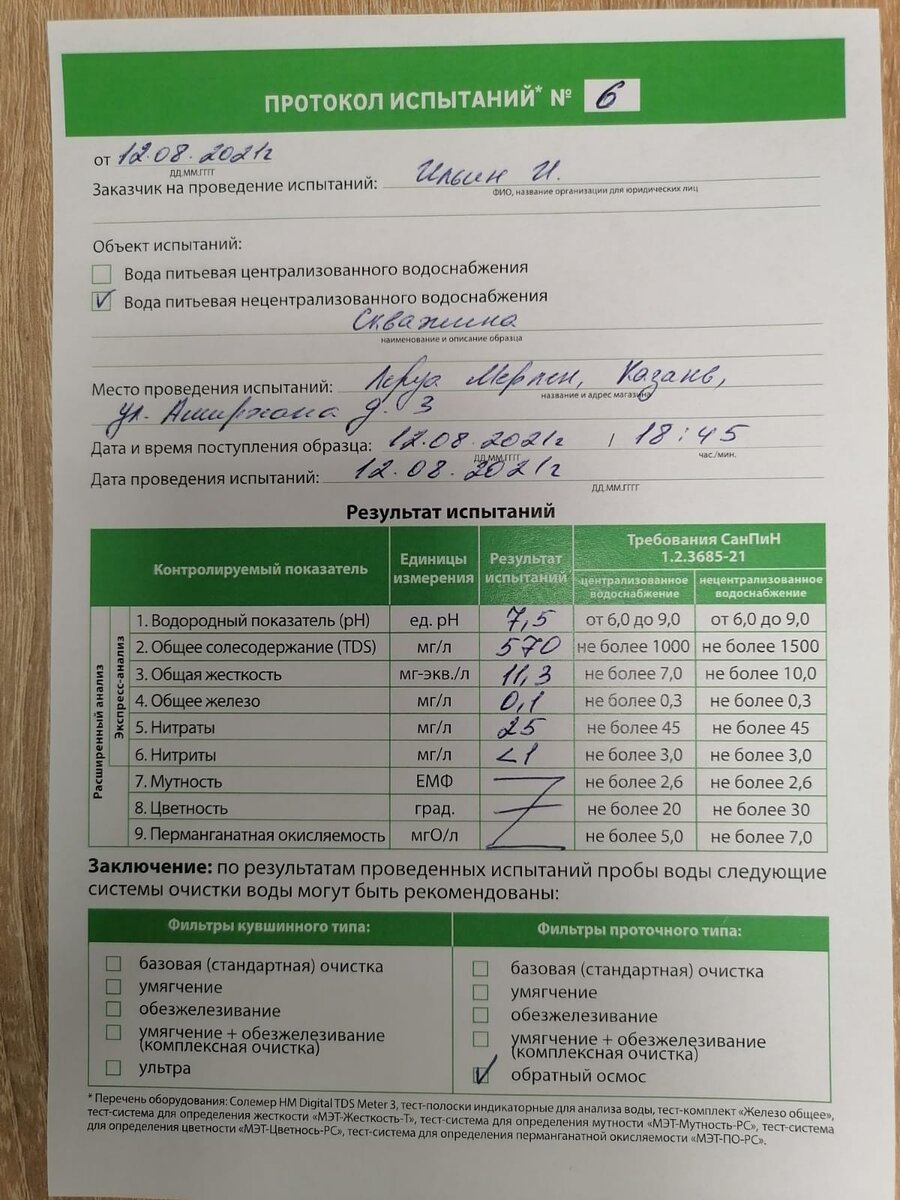 ПРОТОКОЛ ИСПЫТАНИЙ* № 6
от 12.08.2021г
ДД.ММ.ГГГГ
Заказчик на проведение испытаний: Ильин И.
ФИО, название организации для юридических лиц
Объект испытаний:
Вода питьевая централизованного водоснабжения
Вода питьевая нецентрализованного водоснабжения
Скважина
наименование и описание образца
Место проведения испытаний: Леруа Мерлен, Казань,
название и адрес магазина
ул. Амирхана д. 3
Дата и время поступления образца: 12.08.2021г / 18:45
ДД.ММ.ГГГГ час./мин.
Дата проведения испытаний: 12.08.2021г
ДД.ММ.ГГГГ
Результат испытаний
Контролируемый показатель Единицы измерения Результат испытаний Требования СанПиН 1.2.3685-21
централизованное водоснабжение нецентрализованное водоснабжение
Расширенный анализ
Экспресс-анализ
1. Водородный показатель (pH) ед. pH 7,5 от 6,0 до 9,0 от 6,0 до 9,0
2. Общее солесодержание (TDS) мг/л 570 не более 1000 не более 1500
3. Общая жесткость мг-экв./л 11,3 не более 7,0 не более 10,0
4. Общее железо мг/л 0,1 не более 0,3 не более 0,3
5. Нитраты мг/л 25 не более 45 не более 45
6. Нитриты мг/л <1 не более 3,0 не более 3,0
7. Мутность ЕМФ не более 2,6 не более 2,6
8. Цветность град. не более 20 не более 30
9. Перманганатная окисляемость мгО/л не более 5,0 не более 7,0
Заключение: по результатам проведенных испытаний пробы воды следующие
системы очистки воды могут быть рекомендованы:
Фильтры кувшинного типа:
базовая (стандартная) очистка
умягчение
обезжелезивание
умягчение + обезжелезивание
(комплексная очистка)
ультра
Фильтры проточного типа:
базовая (стандартная) очистка
умягчение
обезжелезивание
умягчение + обезжелезивание
(комплексная очистка)
обратный осмос
* Перечень оборудования: Солемер HM Digital TDS Meter 3, тест-полоски индикаторные для анализа воды, тест-комплект «Железо общее»,
тест-система для определения жесткости «МЭТ-Жесткость-Т», тест-система для определения мутности «МЭТ-Мутность-РС», тест-система
для определения цветности «МЭТ-Цветнось-РС», тест-система для определения перманганатной окисляемости «МЭТ-ПО-РС».